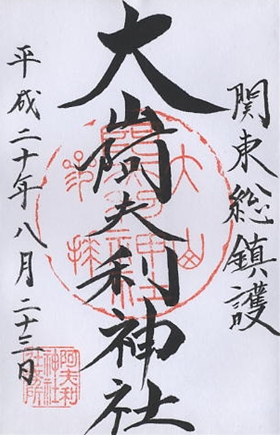 関東総鎮護
大山阿夫利神社
平成二十年八月二十三日
大山
登拝
阿夫利
神社
社務所